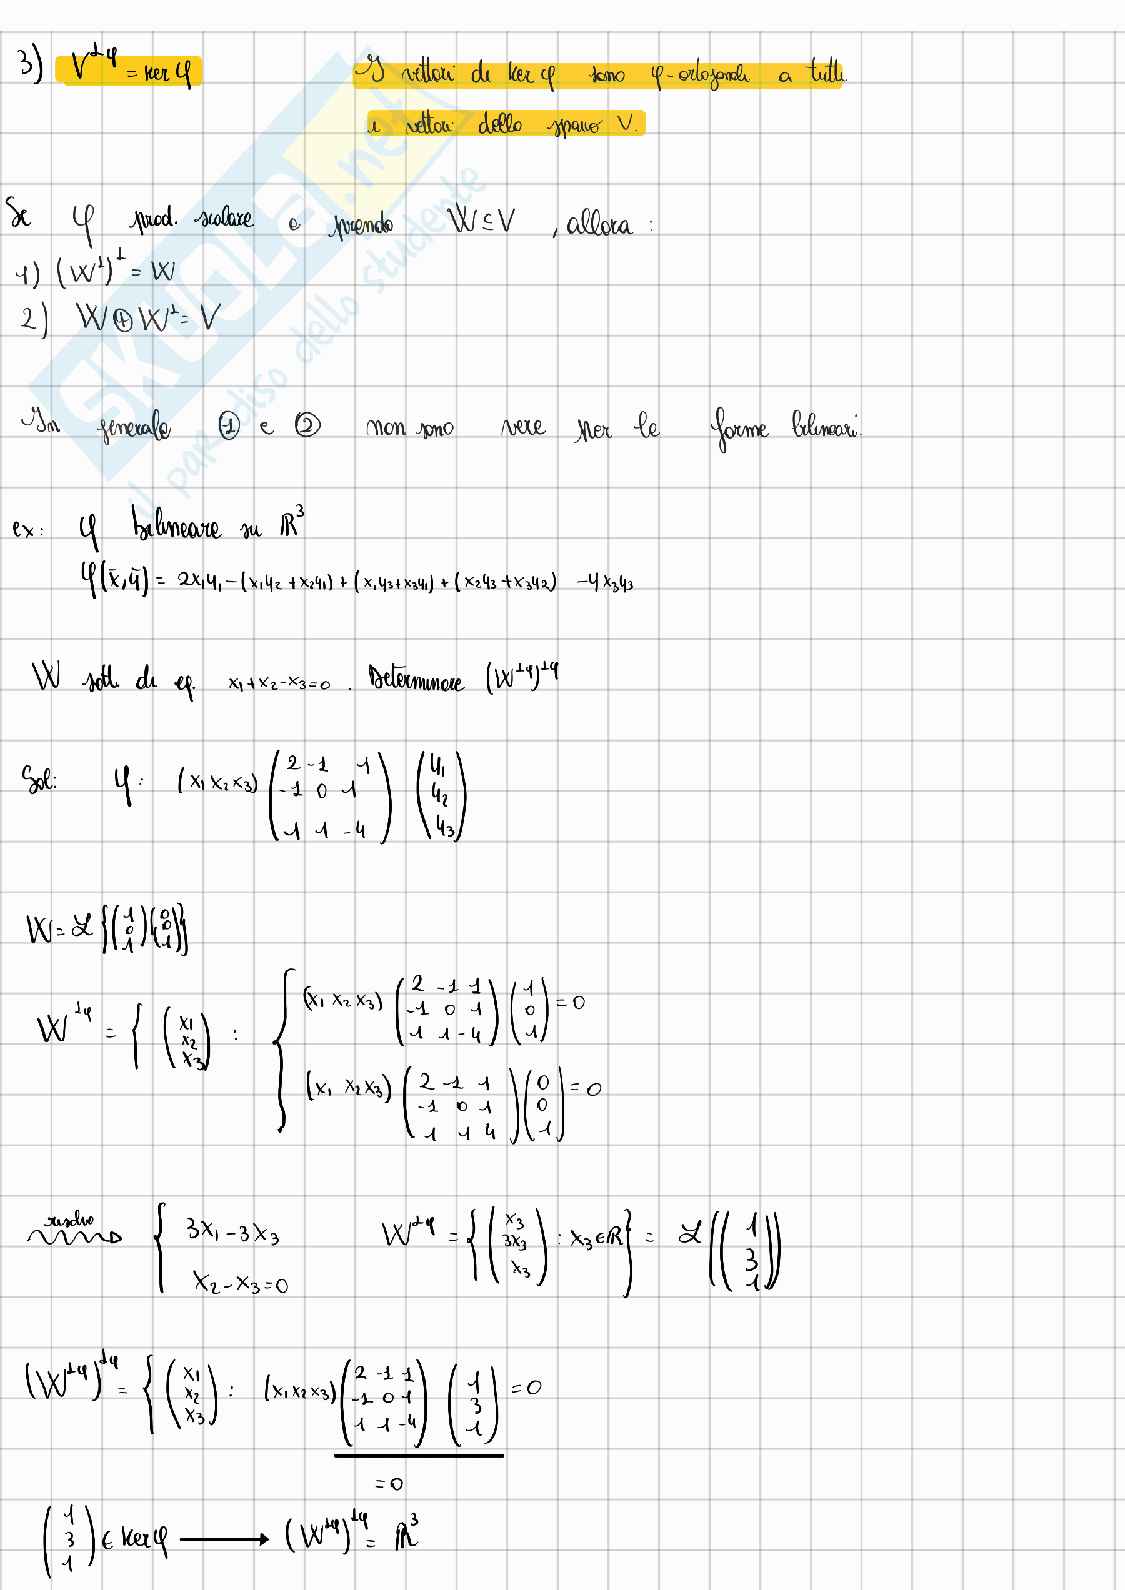 3) V^⊥φ = ker φ I vettori di ker φ sono φ-ortogonali a tutti
i vettori dello spazio V.
SKUOLA.net
il paradiso dello studente
Se φ prod. scalare e prendo W ⊆ V , allora :
1) (W^⊥)^⊥ = W
2) W ⊕ W^⊥ = V
In generale ① e ② non sono vere per le forme bilineari.
ex: φ bilineare su ℝ^3
φ(x̄,ȳ) = 2x₁y₁ - (x₁y₂ + x₂y₁) + (x₁y₃ + x₃y₁) + (x₂y₃ + x₃y₂) - 4x₃y₃
W sott. di eq. x₁+x₂-x₃=0 . Determinare (W^⊥φ)^⊥φ
Sol: φ: (x₁ x₂ x₃) (2 -1 1 / -1 0 1 / 1 1 -4) (y₁ / y₂ / y₃)
W = ℒ {(1 / 0 / 1) (0 / 0 / 1)}
W^⊥φ = { (x₁ / x₂ / x₃) : { (x₁ x₂ x₃) (2 -1 1 / -1 0 1 / 1 1 -4) (1 / 0 / 1) = 0
(x₁ x₂ x₃) (2 -1 1 / -1 0 1 / 1 1 4) (0 / 0 / 1) = 0
risolvo { 3x₁ - 3x₃ W^⊥φ = { (x₃ / 3x₃ / x₃) : x₃ ∈ ℝ } = ℒ ((1 / 3 / 1))
x₂ - x₃ = 0
(W^⊥φ)^⊥φ = { (x₁ / x₂ / x₃) : (x₁ x₂ x₃) (2 -1 1 / -1 0 1 / 1 1 -4) (1 / 3 / 1) = 0
= 0
(1 / 3 / 1) ∈ Ker φ ⟶ (W^⊥φ)^⊥φ = ℝ^3